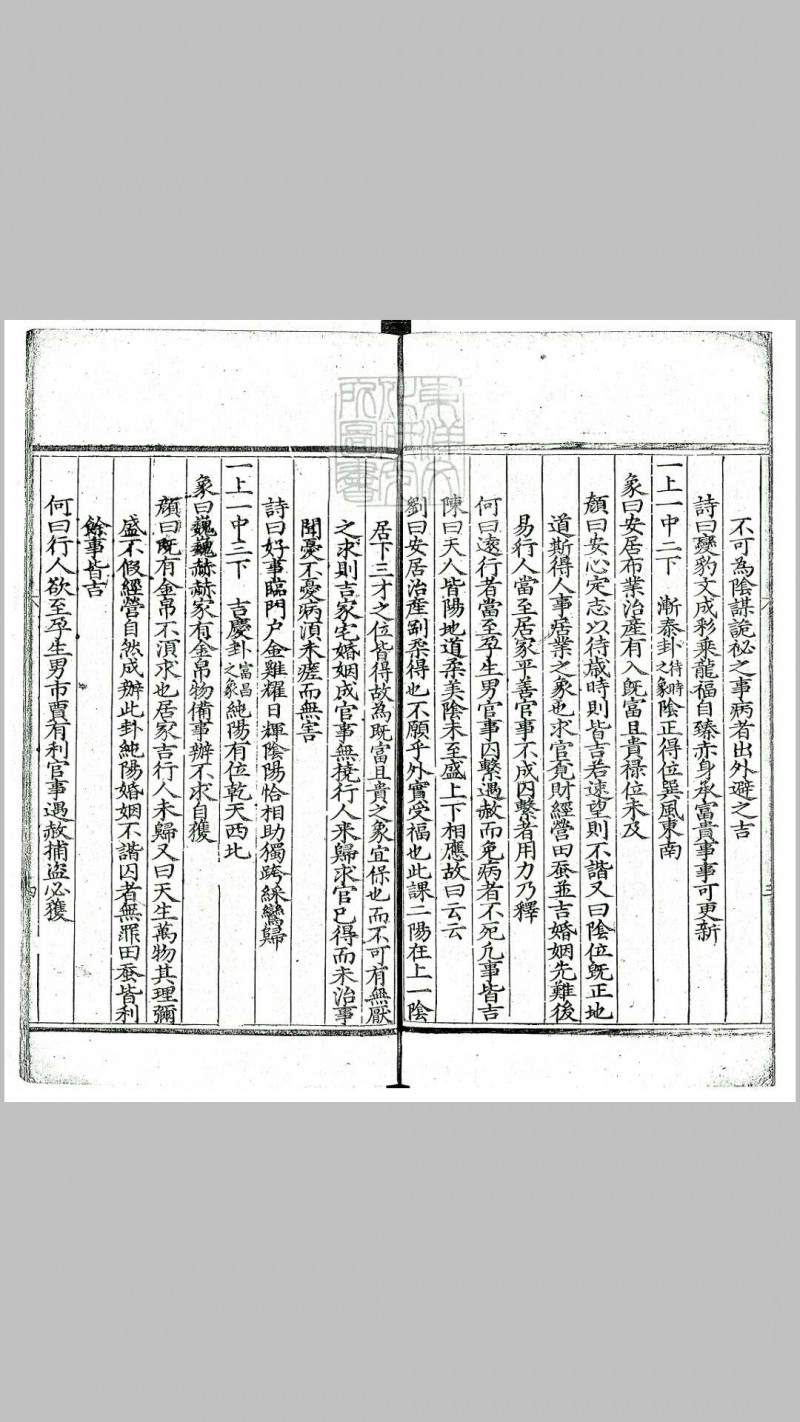 不可為陰謀詭祕之事病者出外避之吉
詩曰變豹文成彩乘龍福自臻赤身承富貴事事可更新
一上一中二下　漸泰卦待時之象陰正得位巽風東南
象曰安居布業治產有入既富且貴祿位未及
顏曰安心定志以待歲時則皆吉若速望則不諧又曰陰位既正地
道斯得人事產業之象也求官覓財經營田蚕並吉婚姻先難後
易行人當至居家平善官事不成囚繫者用力乃釋
何曰遠行者當至孕生男官事囚繫遇赦而免病者不死凡事皆吉
陳曰天人皆陽地道柔美陰未至盛上下相應故曰云云
劉曰安居治產剛柔得也不願乎外實受福也此課二陽在上一陰
居下三才之位皆得故為既富且貴之象宜保也而不可有無厭
之求則吉家宅婚姻成官事無撓行人来歸求官已得而未治事
聞憂不憂病須未瘥而無害
詩曰好事臨門户金雞耀日輝陰陽恰相助獨跨綵鸞歸
一上一中三下　吉慶卦富昌之象純陽有位乾天西北
象曰巍巍赫赫家有金帛物備事辦不求自獲
顏曰既有金帛不須求也居家吉行人未歸又曰天生萬物其理彌
盛不假經營自然成辦此卦純陽婚姻不諧囚者無罪田蚕皆利
餘事皆吉
何曰行人欲至孕生男市賈有利官事遇赦捕盜必獲
三
四